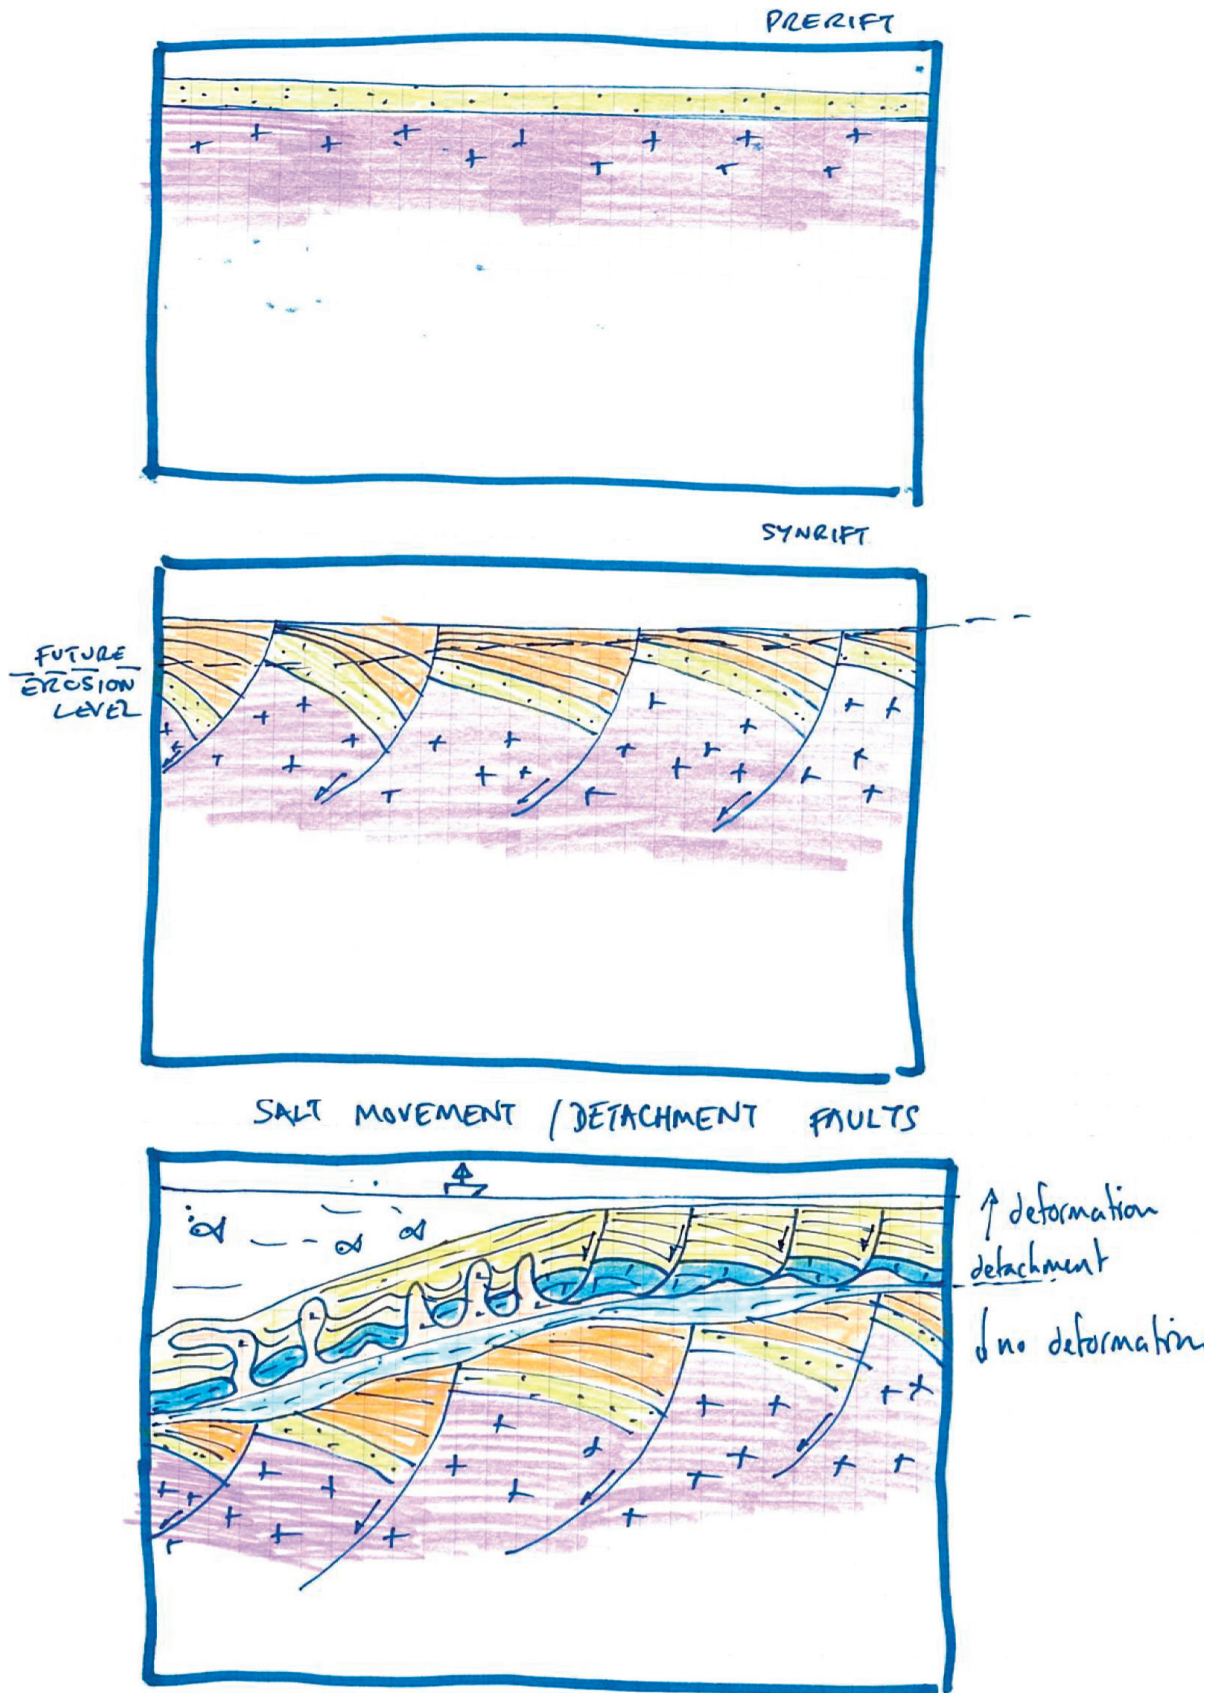 PRERIFT
SYNRIFT
FUTURE
EROSION
LEVEL
SALT MOVEMENT / DETACHMENT FAULTS
↑ deformation
detachment
↓ no deformation